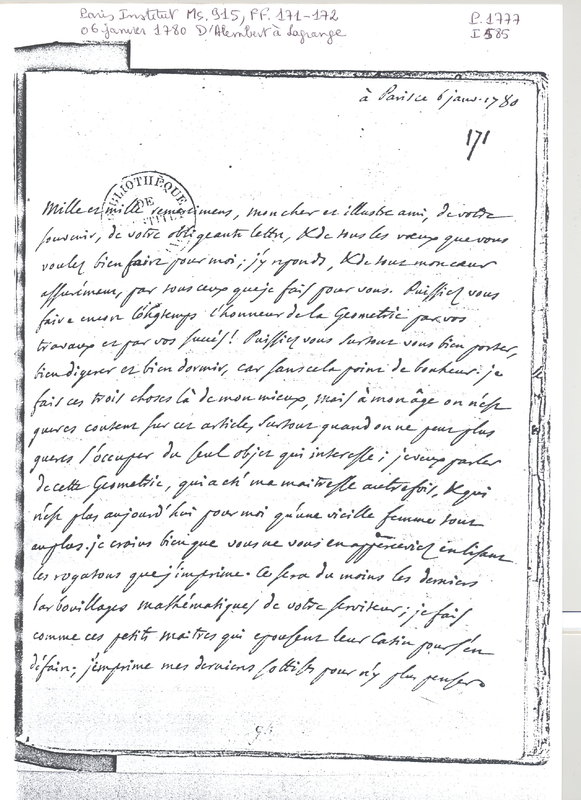 Paris Institut Ms. 915, FF. 171-172
P. 1777
06 janvier 1780 D'Alembert à Lagrange
I 585
à Paris ce 6 janv. 1780
171
BIBLIOTHÈQUE DE
Mille et mille remercimens, mon cher et illustre ami, de votre
souvenir, de votre obligeante lettre, & de tous les vœux que vous
voulez bien faire pour moi; j'y reponds, & de tout mon cœur
assurément, par tous ceux que je fais pour vous. Puissiez vous
faire encore longtemps l'honneur de la Geometrie par vos
travaux et par vos succés! Puissiez vous surtout vous bien porter,
bien digerer et bien dormir, car sans cela point de bonheur. je
fais ces trois choses là de mon mieux, mais à mon âge on n'est
gueres content sur cet article, surtout quand on ne peut plus
gueres s'occuper du seul objet qui interesse; je veux parler
de cette Geometrie, qui a été ma maitresse autrefois, & qui
n'est plus aujourd'hui pour moi qu'une vieille femme tout
au plus. je crains bien que vous ne vous en apperceviez en lisant
les rogatons que j'imprime. Ce sera du moins les derniers
barbouillages mathématiques de votre serviteur; je fais
comme ces petits maitres qui epousent leur catin pour s'en
défaire; j'imprime mes dernieres sottises pour n'y plus penser.